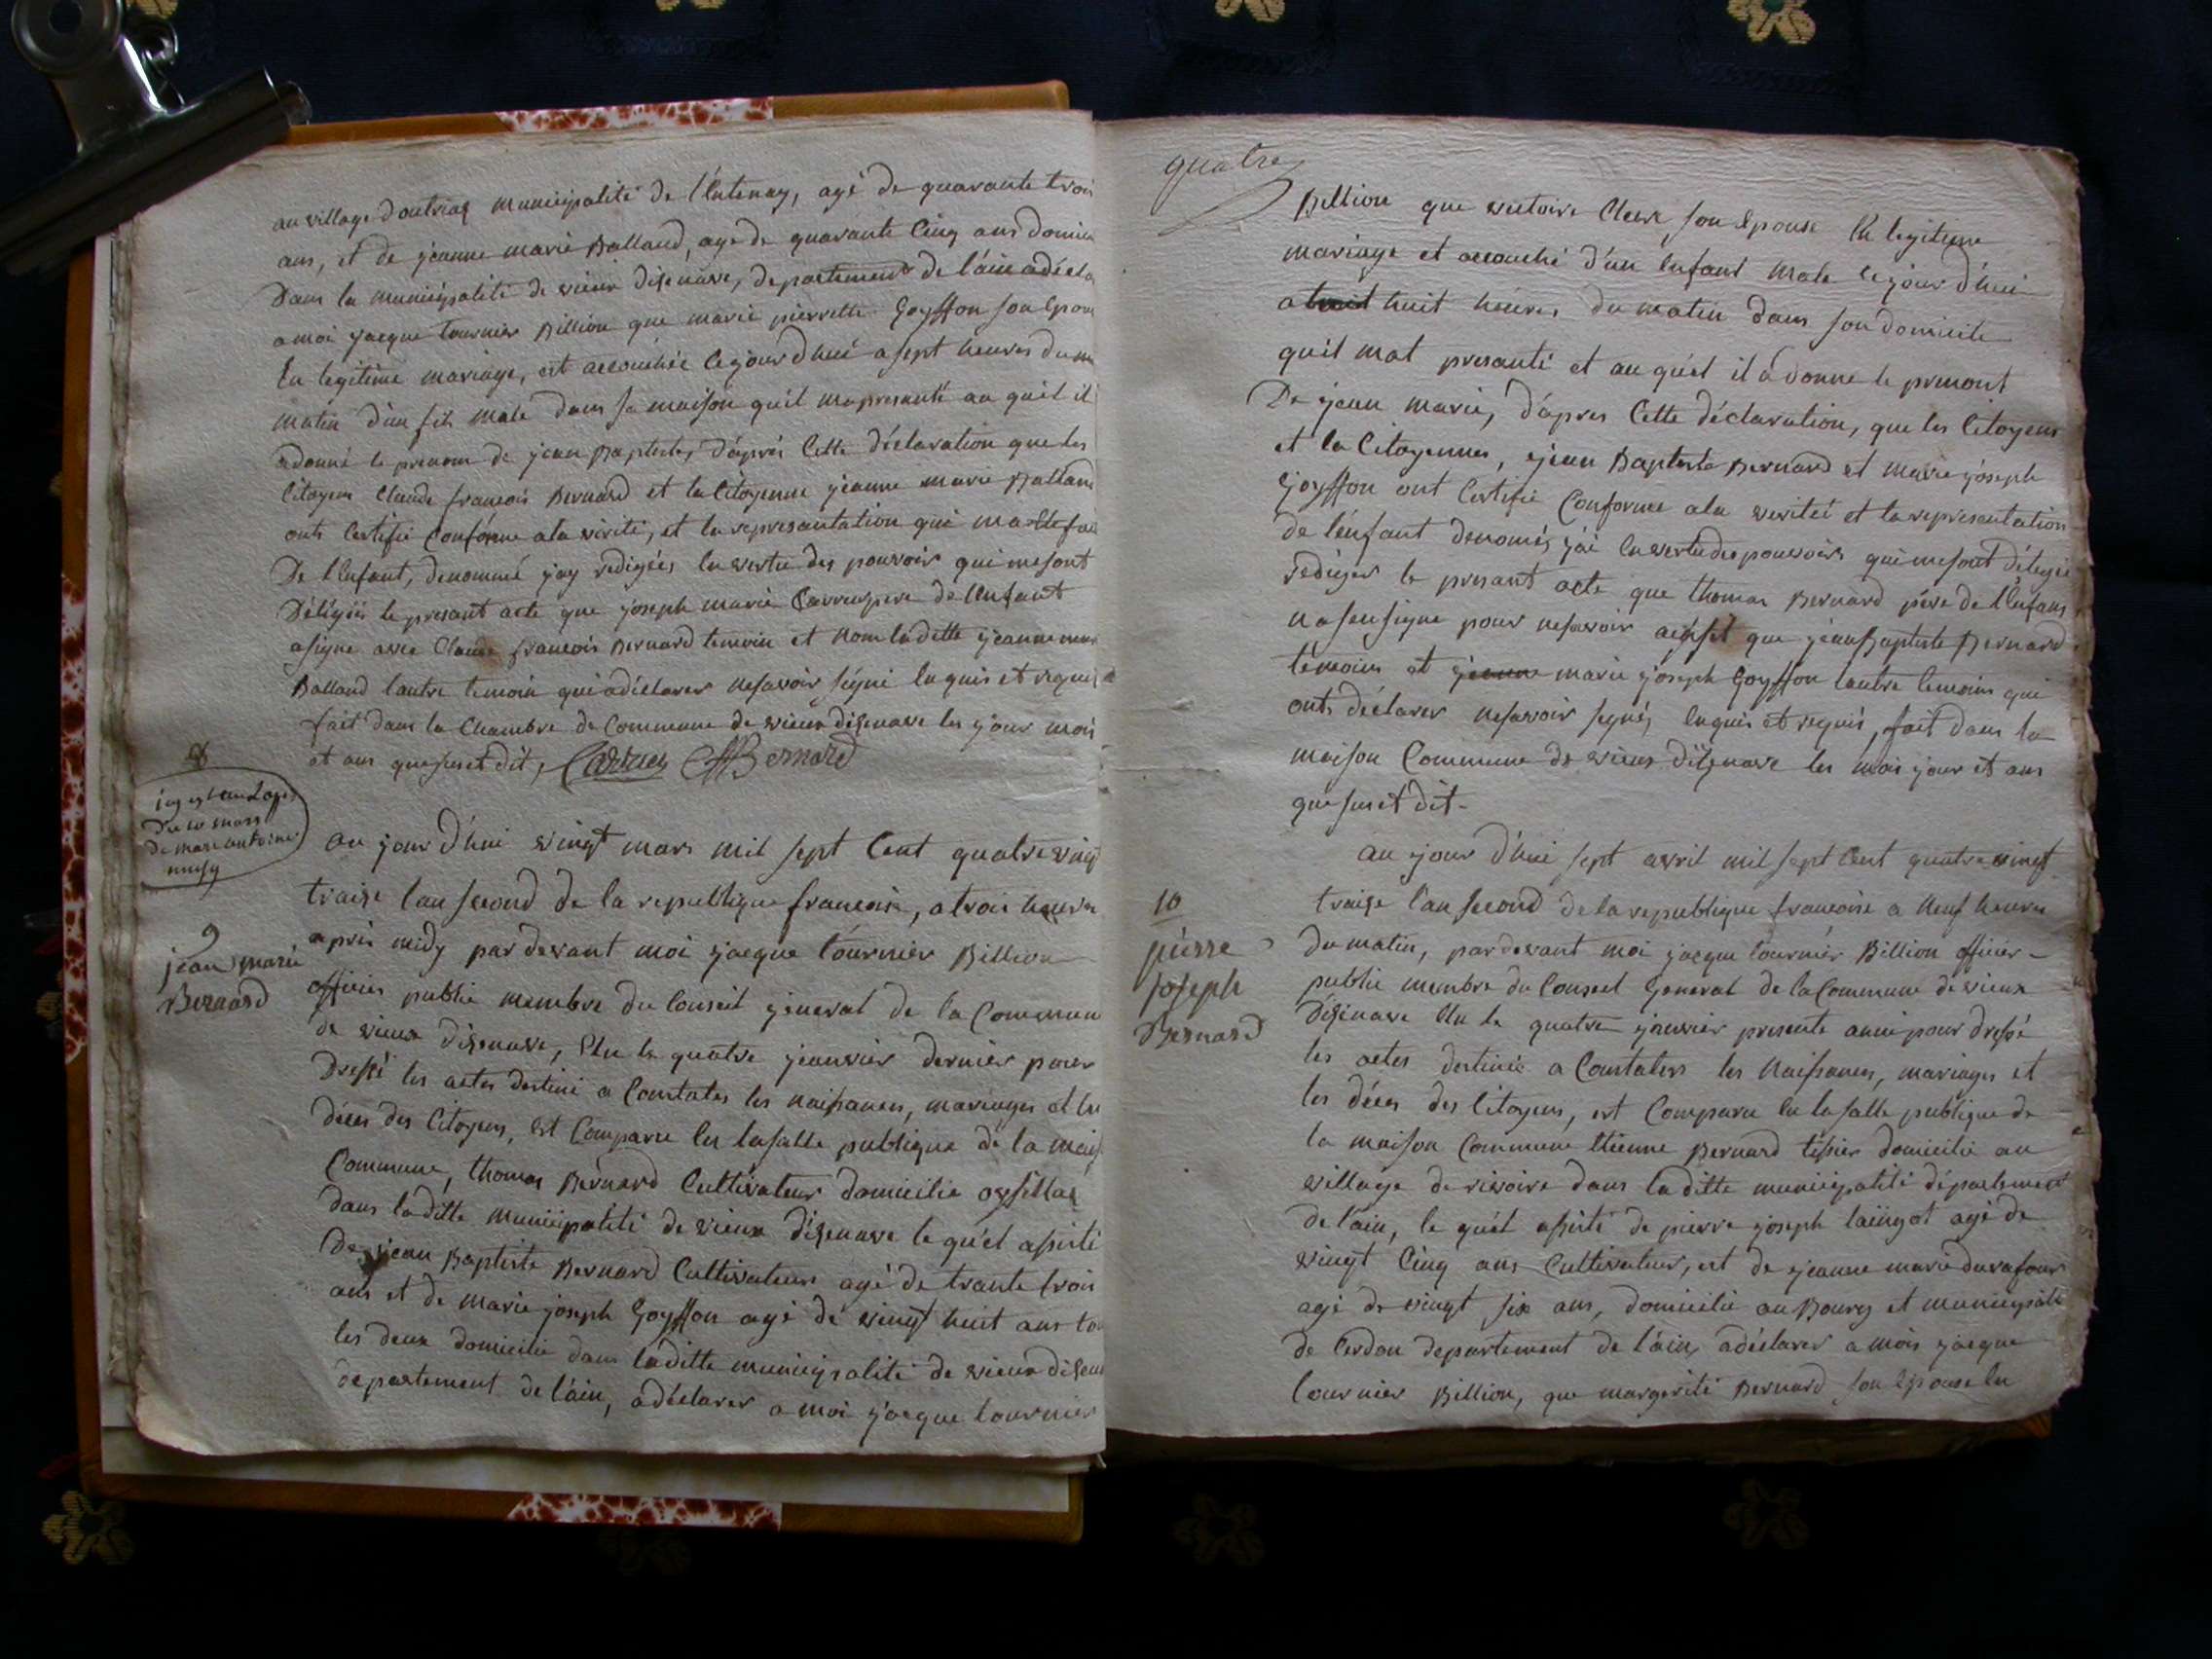 au village doutriaz municipalité de l'Entenay, agé de quarante trois
ans, et de jeanne marie Balland, age de quarante Cinq ans domici
Dans la municipalité de vieux disenave, departement de l'ain adécla
amoi jacque tournier Billion que marie pierrette Goyffon son Epous
En legitime mariage, est accouchée cejourd'hui a sept heures du m
matin d'un fils male dans sa maison quil mapresanté au quel il
adonné le prenom de jean Baptiste, d'aprés Cette déclaration que les
Citoyens Claude francois Bernard et la Citoyenne jeanne marie Balland
onts Certifié Conforme ala vérité, et la represantation qui ma
De l'Enfant, denommé jay redigées En vertu des pouvoir qui mesont
Délégués le presant acte que joseph marie pere de lenfant
asigne avec Claude francois Bernard temoin et nom laditte jeanne mar
Balland lautre temoin qui adéclarer nesavoir signé Enquis et requis
fait dans la Chambre de Commune de vieux disenave les jour mois
et ans quesusest dit, CfBernard
8
du 10 mars
de marc antoine
musy
au jour d'hui vingt mars mil sept Cent quatre ving
traize l'an second de la republique francoise, a trois heures
aprés midy par devant moi jacque tournier Billion
9
jean marie
Bernard
officier public membre du Conseil general de la Commun
de vieux disenave, Elu le quatre jeanvier dernier pour
Dressé les actes destiné a Constater les naissances, mariages et les
décés des Citoyens, Est Comparu En lasalle publique de la mais
Commune, thomas Bernard Cultivateur domicilié
dans laditte municipalité de vieux disenave le quel assisté
De jean Baptiste Bernard Cultivateur agé de trante trois
ans et de marie joseph Goyffon agé de vingt huit ans to
les deux domicilié dans laditte municipalité de vieux disen
departement de l'ain, adéclarer a moi jacque tournier
quatre
Billion que victoire son Epouse En legitime
mariage et accouché d'un Enfant male cejour d'hui
a huit heures du matin dans son domicile
quil mat presanté et au quel il a donné le prenont
De jean marie, d'apres Cette déclaration, que les Citoyens
et la Citoyennes, jean Baptiste Bernard et marie joseph
Goyffon ont Certifié Conforme ala verité et la represantation
de l'enfant denomés jai En vertu des pouvoirs qui mesont délégué
rediger le presant acte que thomas Bernard pére de l'Enfans
na sousigne pour nesavoir que jean Baptiste Bernard
témoins et jeanne marie joseph Goyffon lautre temoins qui
onts déclarer nesavoir signés, Enquis et requis, fait dans la
maison Commune de vieux disenave les mois jour et ans
que susest dit -
au jour d'hui sept avril mil sept Cent quatre vingt
10
pierre
joseph
Bernard
traize l'an second de la republique francoise a neuf heures
du matin, pardevant moi jacque tournier Billion officier
public membre du Conseel general de la Commune de vieux
disenave Elu le quatre janvier presente anné pour dressé
les actes destinés a Constalers les naissances, mariages et
les déces des Citoyens, est Comparu En la salle publique de
la maison Commune Etienne Bernard tissier domicilié au
village de rivoire dans laditte municipalité département
de l'ain, le quel assisté de pierre joseph agé de
vingt Cinq ans Cultivateur, et de jeanne marie dusafour
agé de vingt six ans, domicilié au Bourg et municipalit
de Cerdon departement de l'ain, adéclarer a mois jacque
tournier Billion, que margerite Bernard son Epouse En